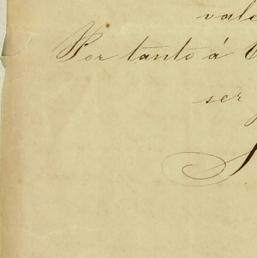 vale
Por tanto á
ser